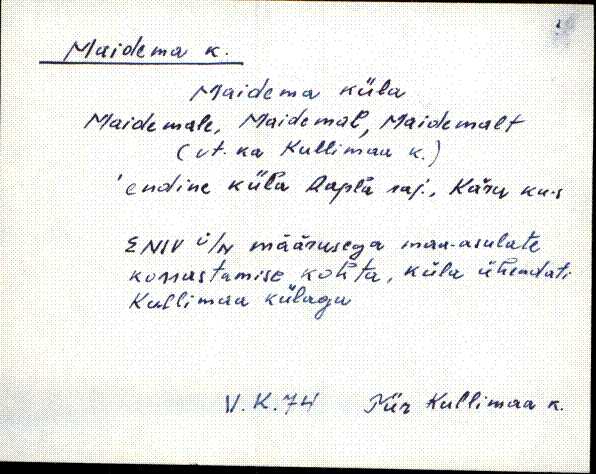 Maidema k.
Maidema küla
Maidemale, Maidemal, Maidemalt
(vt. ka Kullimaa k.)
'endine küla Rapla raj., Käru ku-s
ENSV ü/n määrusega maa-asulate
korrastamise kohta, küla ühendati
Kullimaa külaga
V.K.74 Kullimaa k.